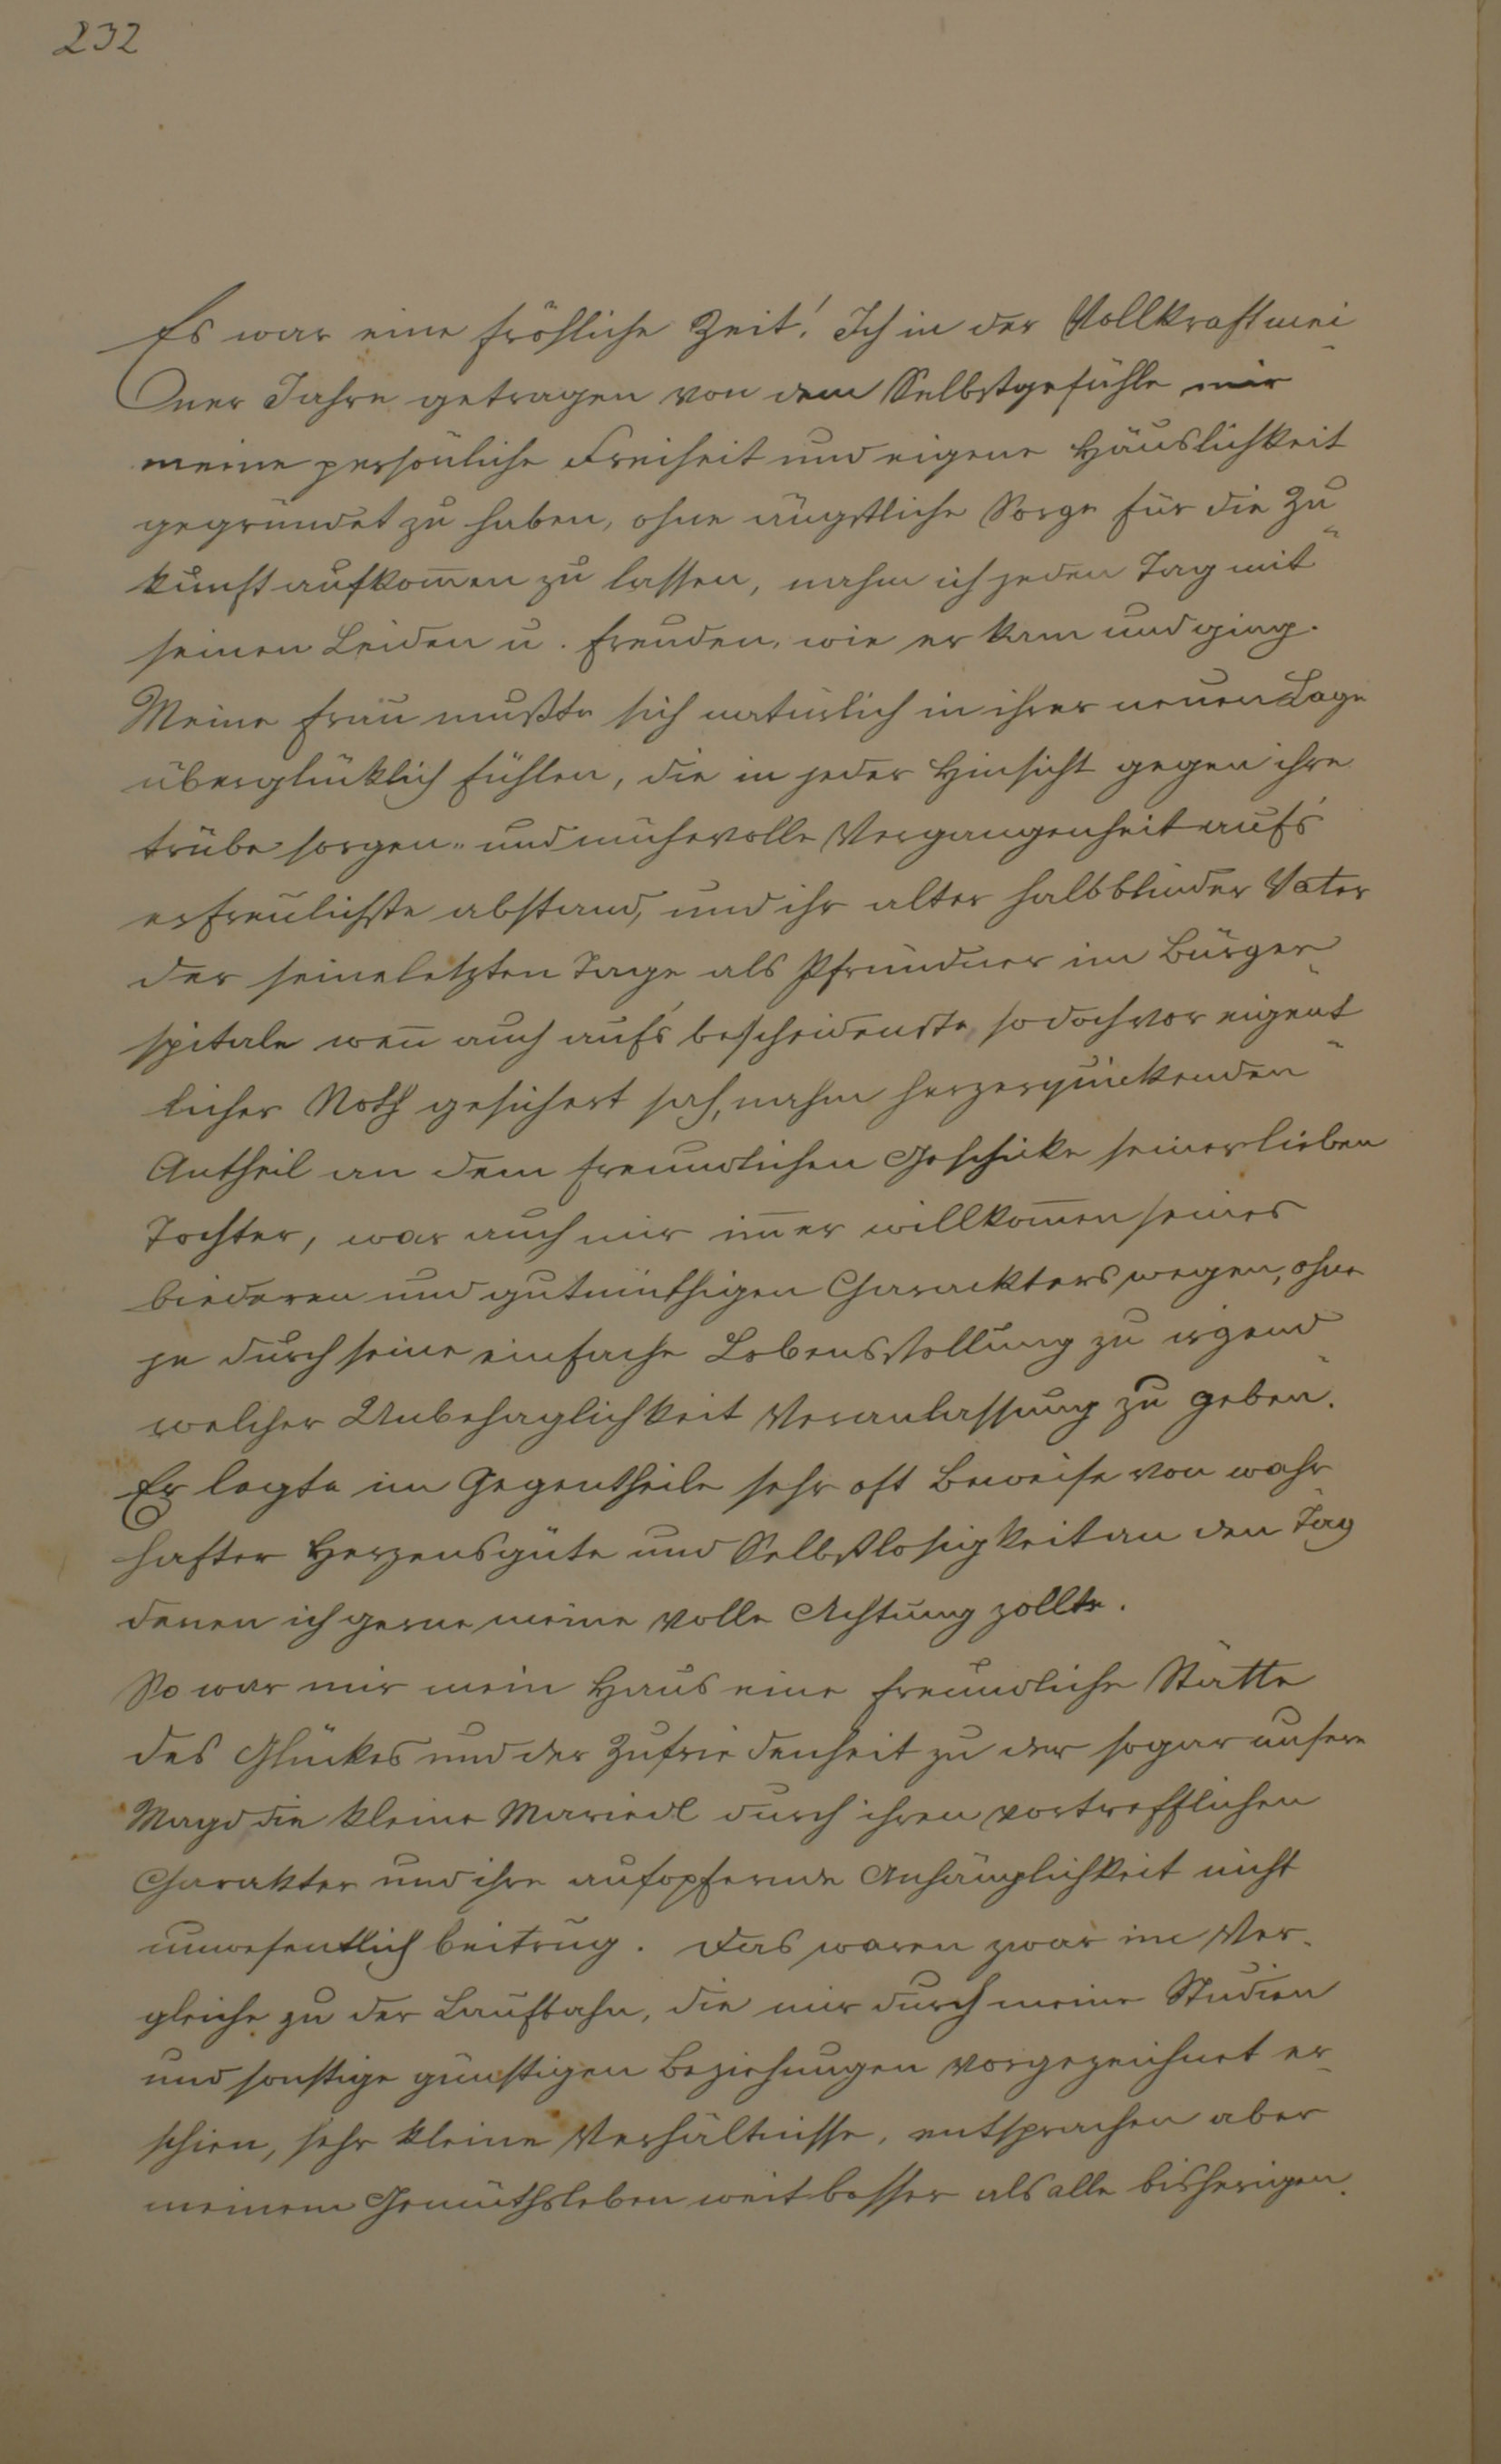 232
Es war eine fröhliche Zeit! Ich in der Vollkraft mei-
ner Jahre getragen von dem Selbstgefühle mir
meine persönliche Freiheit und eigene Häuslichkeit
gegründet zu haben, ohne ängstliche Sorge für die Zu-
kunft aufkom̅en zu lassen, nahm ich jeden Tag mit
seinen Leiden u. Freuden, wie er kam und ging.
Meine Frau mußte sich natürlich in ihrer neuen Lage
überglücklich fühlen, die in jeder Hinsicht gegen ihre
trübe sorgen- und mühevolle Vergangenheit auf's
erfreulichste abstand, und ihr alter halbblinder Vater
der seine letzten Tage als Pfründner im Bürger-
spitale wen̅ auch auf's bescheidenste, so doch vor eigent-
licher Noth gesichert sah, nahm herzerquickenden
Antheil an dem freundlichen Geschicke seiner lieben
Tochter, war auch mir im̅er willkom̅en seines
biederen und gutmüthigen Charackters wegen, ohne
je durch seine einfache Lebensstellung zu irgend-
welcher Unbehaglichkeit Veranlassung zu geben.
Er legte im Gegentheile sehr oft Beweise von wahr-
hafter Herzensgüte und Selbstlosigkeit an den Tag
denen ich gerne meine volle Achtung zollte.
So war mir mein Haus eine freundliche Stätte
des Glückes und der Zufriedenheit zu der sogar unsere
Magd die kleine Mariedl durch ihren vortrefflichen
Charakter und ihre aufopfernde Anhänglichkeit nicht
unwesentlich beitrug. Das waren zwar im Ver-
gleiche zu der Laufbahn, die mir durch meine Studien
und sonstige günstigen Beziehungen vorgezeichnet er-
schien, sehr kleine Verhältnisse, entsprachen aber
meinem Gemüthsleben weit besser als alle bisherigen.